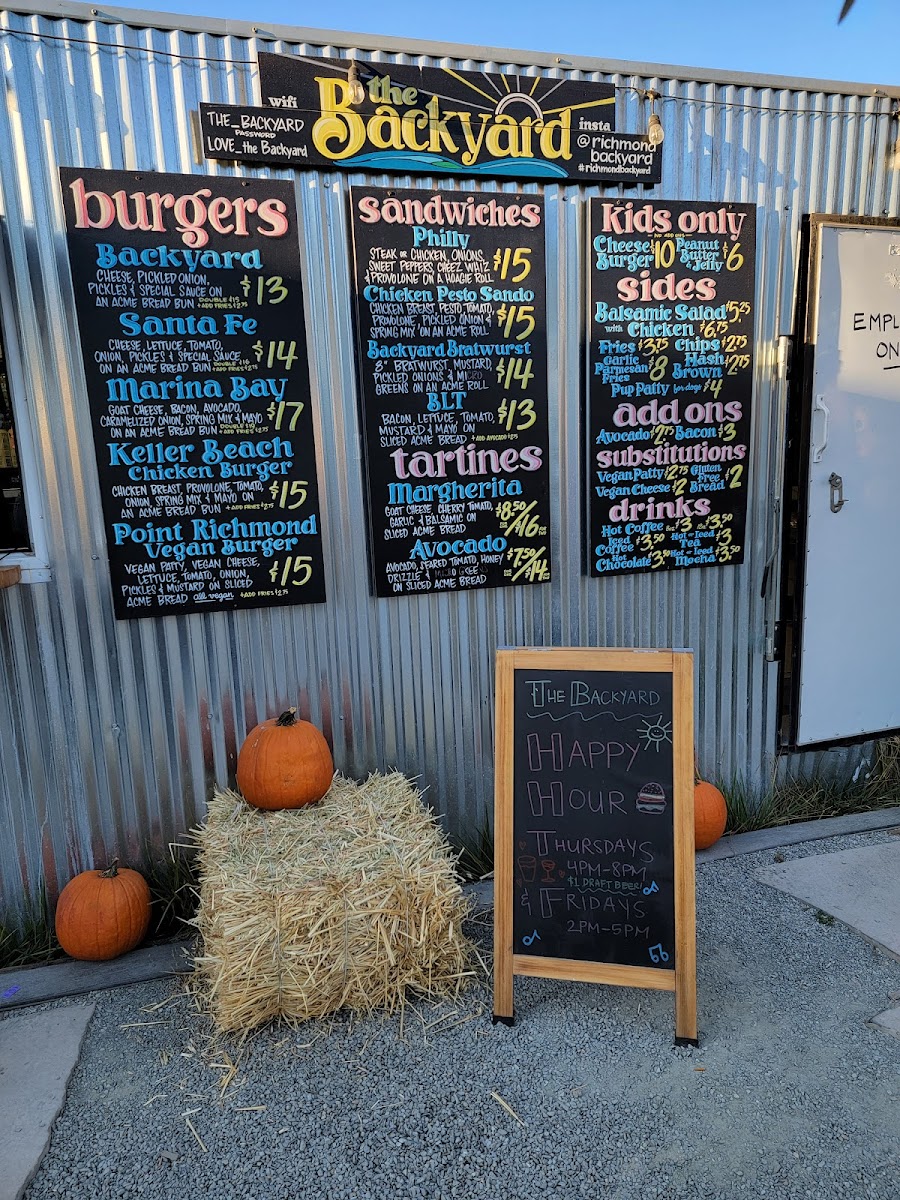 wifi
THE_BACKYARD
PASSWORD
LOVE_the Backyard
the
Backyard
insta
@richmond
backyard
#richmondbackyard
burgers
Backyard
CHEESE, PICKLED ONION,
PICKLES & SPECIAL SAUCE ON
AN ACME BREAD BUN
+ADD FRIES $2.75
$13
Santa Fe
CHEESE, LETTUCE, TOMATO,
ONION, PICKLES & SPECIAL SAUCE
AN ACME BREAD BUN
+ADD FRIES $2.75
$14
Marina Bay
GOAT CHEESE, BACON, AVOCADO,
CARAMELIZED ONION, SPRING MIX & MAYO
ON AN ACME BREAD BUN
+ADD FRIES $2.75
$17
Keller Beach
Chicken Burger
CHICKEN BREAST, PROVOLONE, TOMATO,
ONION, SPRING MIX & MAYO ON
AN ACME BREAD BUN +ADD FRIES $2.75
$15
Point Richmond
Vegan Burger
VEGAN PATTY, VEGAN CHEESE,
LETTUCE, TOMATO, ONION,
PICKLES & MUSTARD ON SLICED
ACME BREAD all vegan +ADD FRIES $2.75
$15
sandwiches
Philly
STEAK OR CHICKEN, ONIONS,
SWEET PEPPERS, CHEEZ WHIZ
& PROVOLONE ON A HOAGIE ROLL
$15
Chicken Pesto Sando
CHICKEN BREAST, PESTO, TOMATO,
PROVOLONE, PICKLED ONION &
SPRING MIX ON AN ACME ROLL
$15
Backyard Bratwurst
8" BRATWURST, MUSTARD,
PICKLED ONIONS & MICRO
GREENS ON AN ACME ROLL
$14
BLT
BACON, LETTUCE, TOMATO,
MUSTARD & MAYO ON
SLICED ACME BREAD +ADD AVOCADO $2.75
$13
tartines
Margherita
GOAT CHEESE, CHERRY TOMATO,
GARLIC & BALSAMIC ON
SLICED ACME BREAD
$8.50/$16
Avocado
AVOCADO, SEARED TOMATO, HONEY
DRIZZLE & MICRO GREENS
ON SLICED ACME BREAD
$7.50/$14
Kids only
NO ADD ONS
Cheese Burger $10 Peanut Butter & Jelly $6
sides
Balsamic Salad $5.25
with Chicken $6.75
Fries $3.75 Chips $2.75
Garlic Parmesan Fries $8 Hash Brown $2.75
Pup Patty for dogs $4
add ons
Avocado $2.75 Bacon $3
substitutions
Vegan Patty $2.75 Gluten Free Bread $2
Vegan Cheese $2
drinks
Hot Coffee $3 Tea $3.50
Iced Coffee $3.50 Hot or Iced Tea $3
Hot Chocolate $3.50 Hot or Iced Mocha $3.50
EMPL
ON
THE BACKYARD
HAPPY
HOUR
THURSDAYS
4PM-8PM
$1 DRAFT BEER!
& FRIDAYS
2PM-5PM